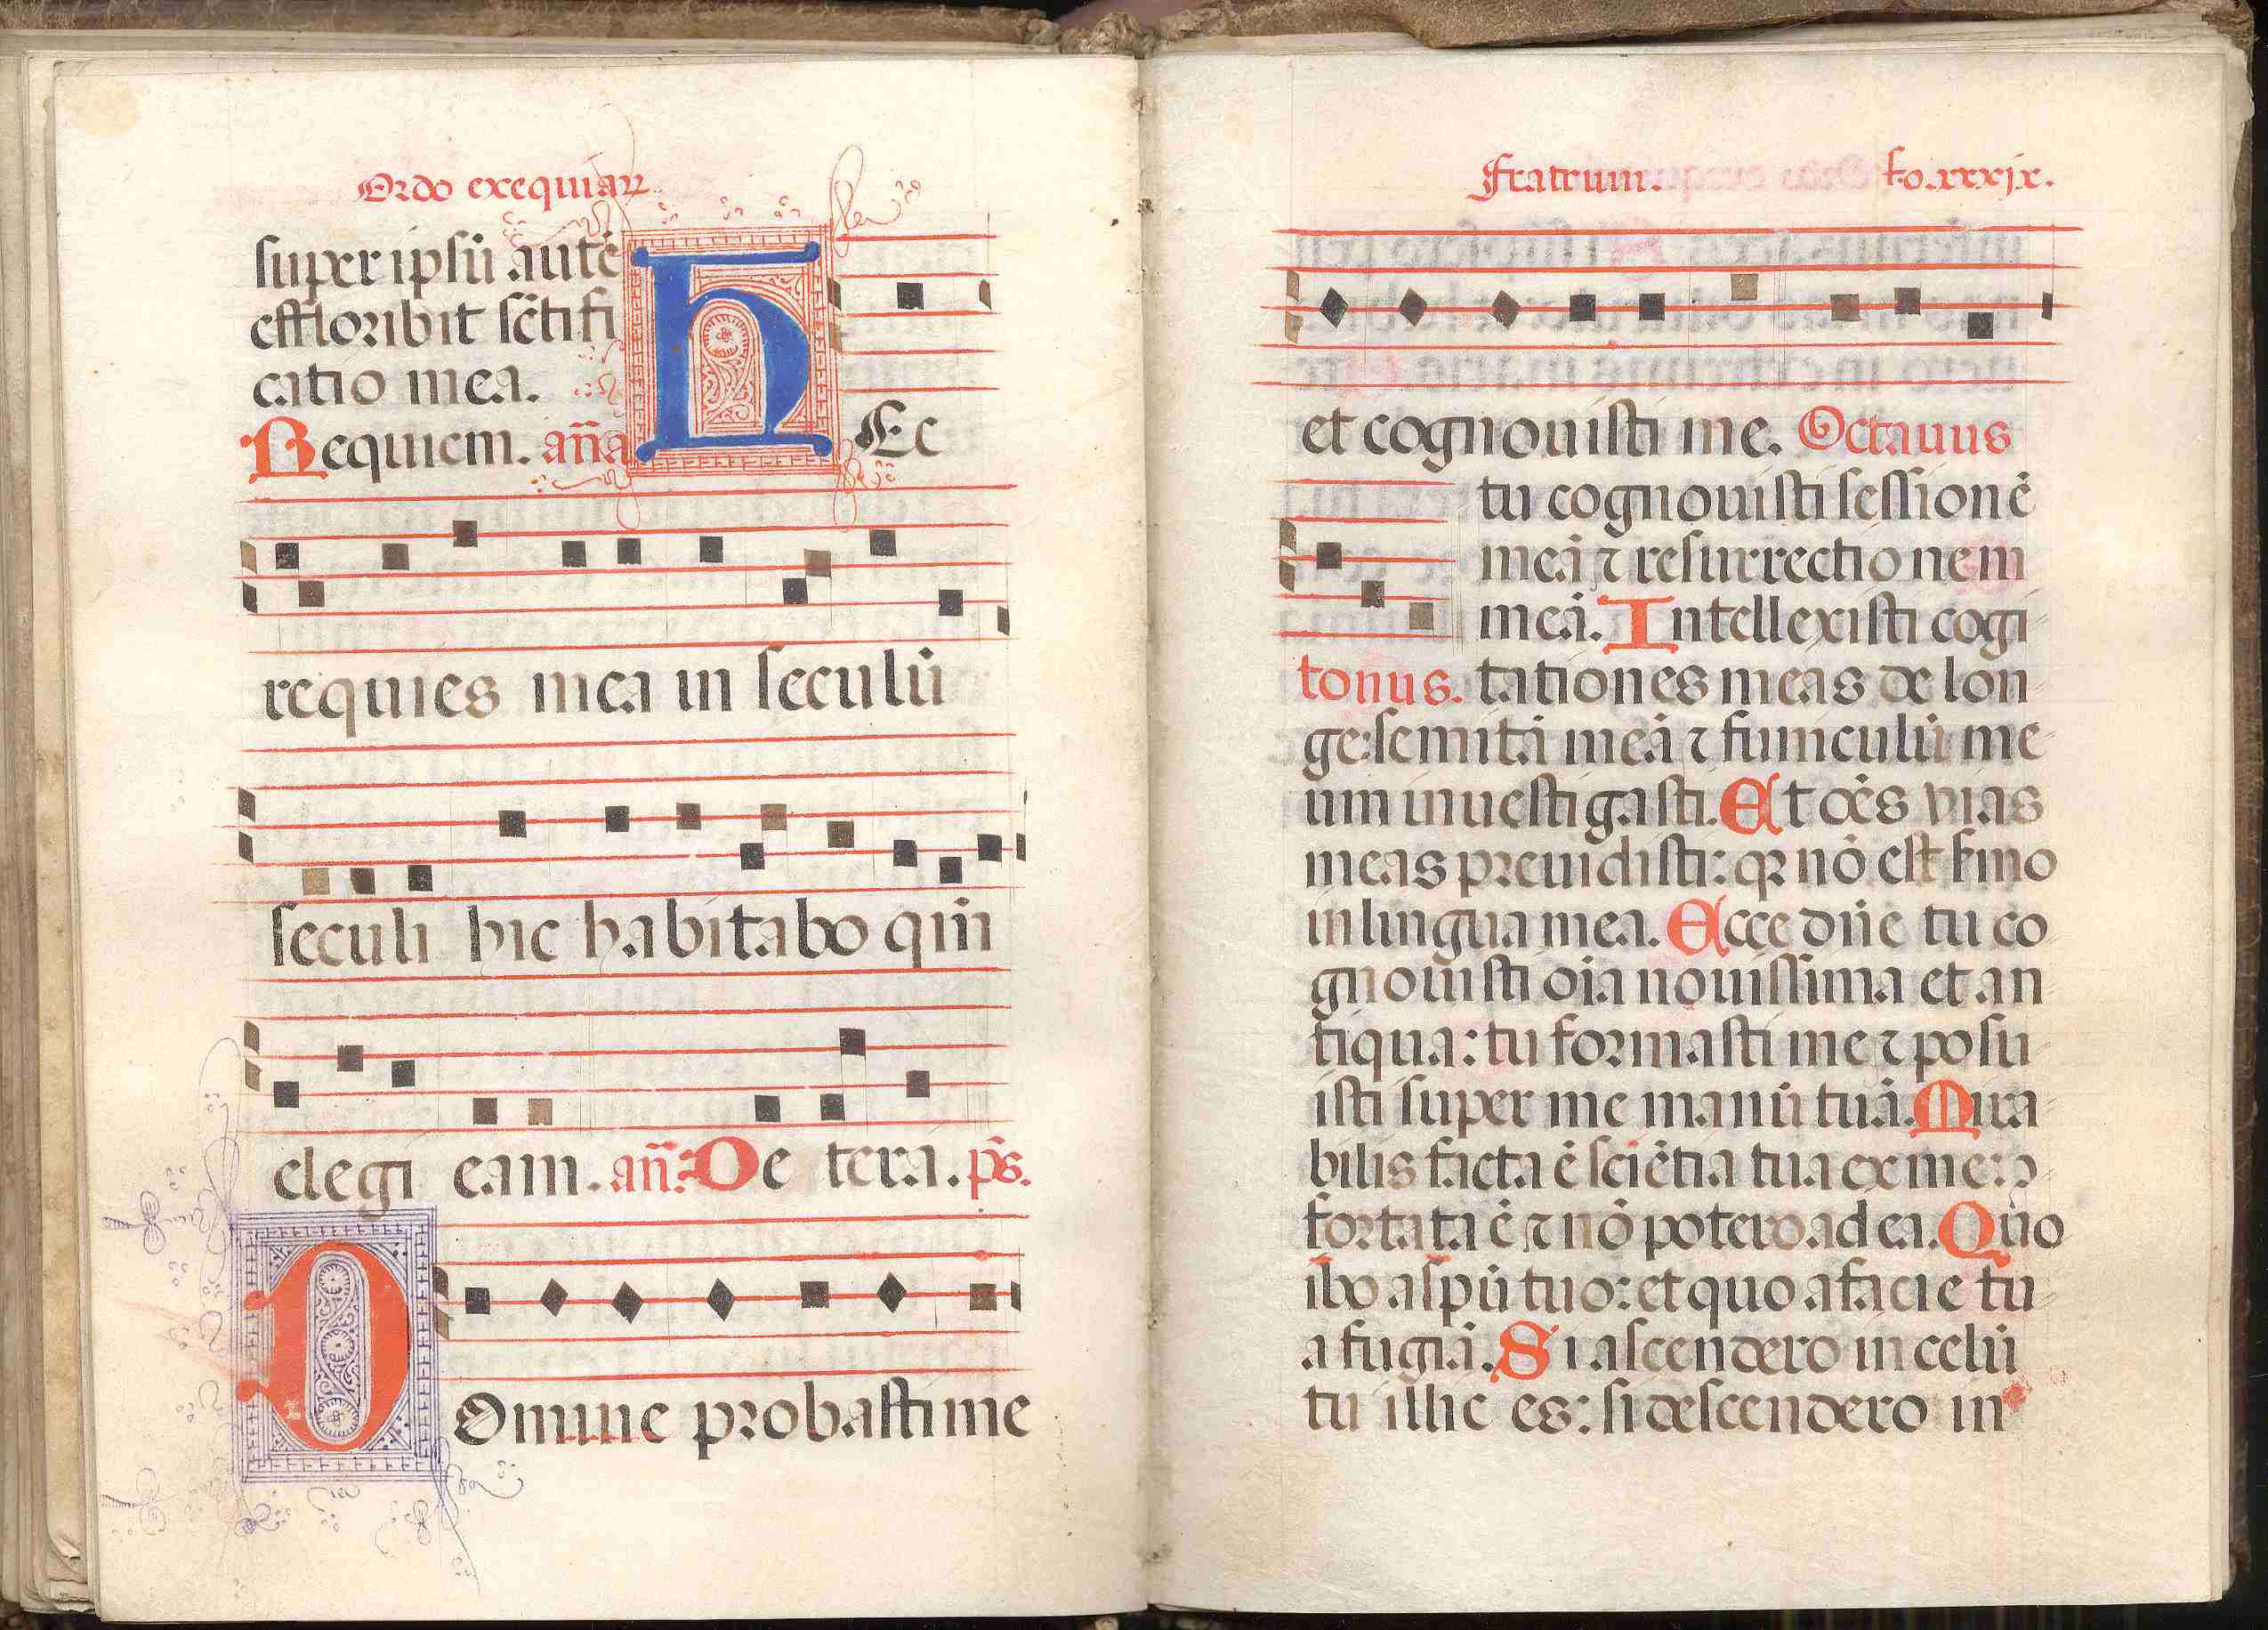 Ordo exequiaꝝ
super ipsū autē
effloribit sc̄tifi
catio mea.
Requiem. an̄a HEc
requies mea in seculū
seculi hic habitabo qm̄
elegi eam. an̄: De tera. ps̄.
DOmine probasti me
Fratrum. fo. xxxix.
et cognouisti me. Octauus
tu cognouisti sessionē
meā ⁊ resurrectionem
meā. Intellexisti cogi
tonus. tationes meas de lon
ge: semitā meā ⁊ funiculū me
um inuestigasti. Et oēs vias
meas preuidisti: qꝛ nō est smo
in lingua mea. Ecce dn̄e tu co
gnouisti oīa nouissima et an
tiqua: tu formasti me ⁊ posu
isti super me manū tuā. Mira
bilis facta ē sciētia tua ex me: ɔ
fortata ē, ⁊ nō potero ad ea. Quo
ibo a spū tuo: et quo a facie tu
a fugiā. Si ascendero in celū
tu illic es: si descendero in